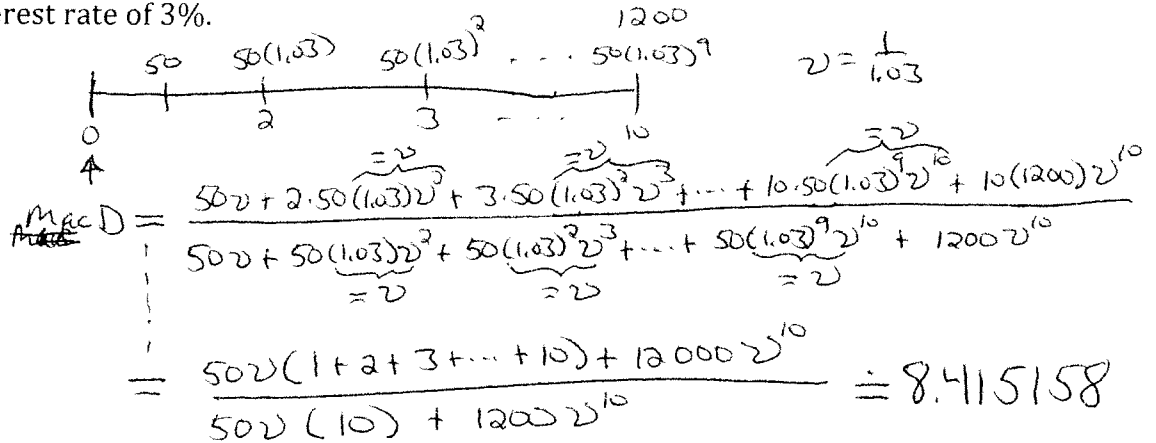 erest rate of 3%.
1200
50 50(1.03) 50(1.03)² . . . 50(1.03)⁹
v = 1/1.03
0 2 3 - - - - 10
= v = v = v
MacD = (50v + 2·50(1.03)v² + 3·50(1.03)²v³ + ··· + 10·50(1.03)⁹v¹⁰ + 10(1200)v¹⁰) / (50v + 50(1.03)v² + 50(1.03)²v³ + ··· + 50(1.03)⁹v¹⁰ + 1200v¹⁰)
= v = v = v
= (50v(1+2+3+···+10) + 12000v¹⁰) / (50v(10) + 1200v¹⁰) ≐ 8.415158